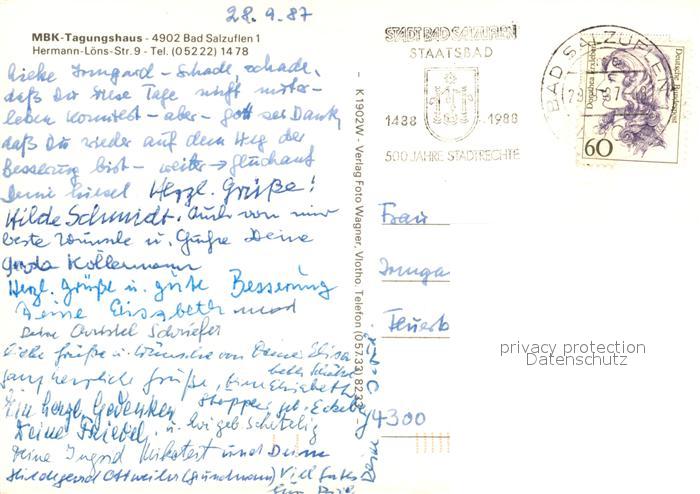 28.9.87
MBK-Tagungshaus - 4902 Bad Salzuflen 1
Hermann-Löns-Str. 9 - Tel. (05222) 1478
Liebe Irmgard - Schade, schade,
daß Du diese Tage nicht miter-
leben konntest - aber - gott sei Dank,
daß Du wieder auf dem Weg der
Besserung bist - weiter → glückauf
Deine Liesel Herzl. Grüße!
Hilde Schmidt. Auch von mir
beste Wünsche u. Grüße Deine
Gerda Kollermann
Herzl. Grüße u. gute Besserung
Deine Elisabeth
Deine Christel Schriefer
Liebe Grüße u. Wünsche von Deine Elisa
beth
ganz herzliche Grüße, Eure Elisabeth
Stopper, geb. Eckeberg
Ein herzl. Gedenken
Deine Friedel
Deine Ingrid und Deine
Hildegard Ottweiler (Gundmann) Viel Gutes
K 1902W - Verlag Foto Wagner, Vlotho, Telefon (05733) 8233
Deine
STADT BAD SALZUFLEN
STAATSBAD
1488 - 1988
500 JAHRE STADTRECHTE
BAD SALZUFLEN
Dorothea Erxleben
Deutsche Bundespost
60
Frau
Irmga
Feuerb
4300
privacy protection
Datenschutz